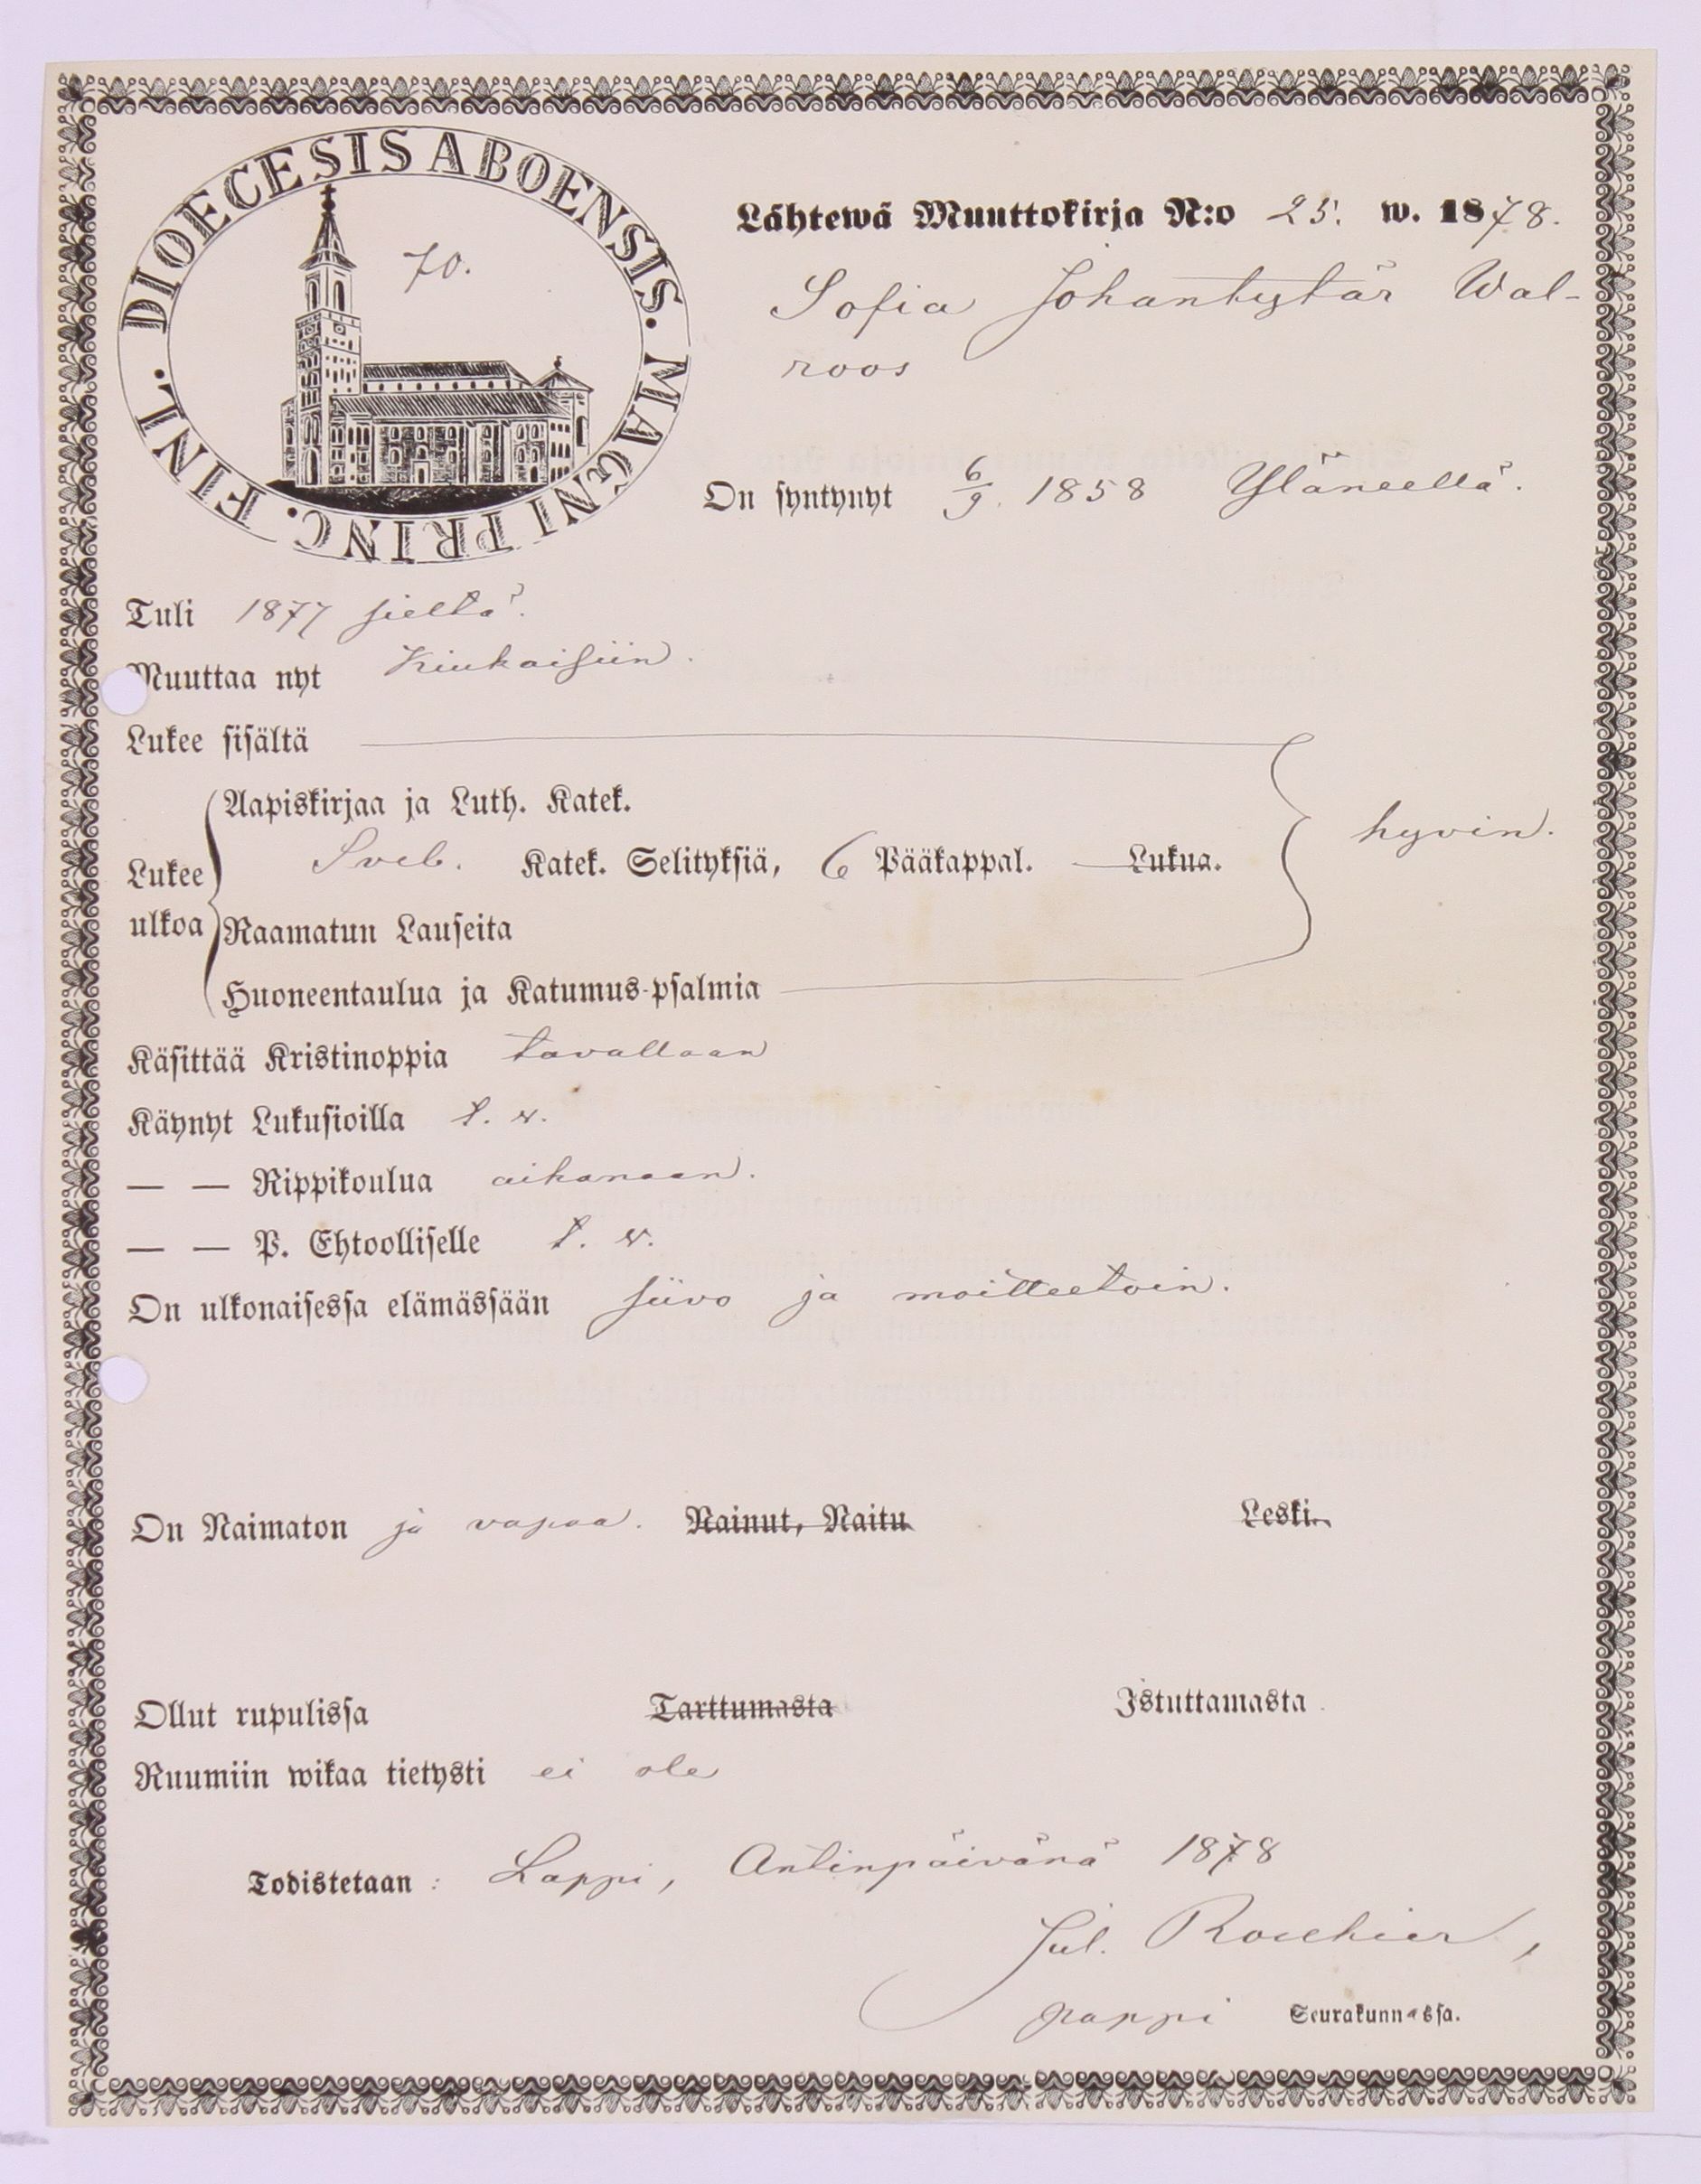 DIOECESIS ABOENSIS. MAGNI PRINC. FINL.
70.
Lähtewä Muuttokirja N:o 25. w. 1878.
Sofia Johantytär Wal-
roos
On syntynyt 6/9. 1858 Yläneellä.
Tuli 1877 sieltä.
Muuttaa nyt Kiukaisiin.
Lukee sisältä
Aapiskirjaa ja Luth. Katek.
hyvin.
Lukee ulkoa
Sveb. Katek. Selityksiä, 6 Pääkappal. Lukua.
Raamatun Lauseita
Huoneentaulua ja Katumus-psalmia
Käsittää Kristinoppia tavallaan
Käynyt Lukusioilla t. v.
— — Rippikoulua aikanaan.
— — P. Ehtoolliselle t. v.
On ulkonaisessa elämässään siivo ja moitteetoin.
On Naimaton ja vapaa. Nainut, Naitu Leski.
Ollut rupulissa Tarttumasta Istuttamasta.
Ruumiin wikaa tietysti ei ole
Todistetaan: Lappi, Antinpäivänä 1878
Jul. Roschier,
pappi Seurakunnassa.